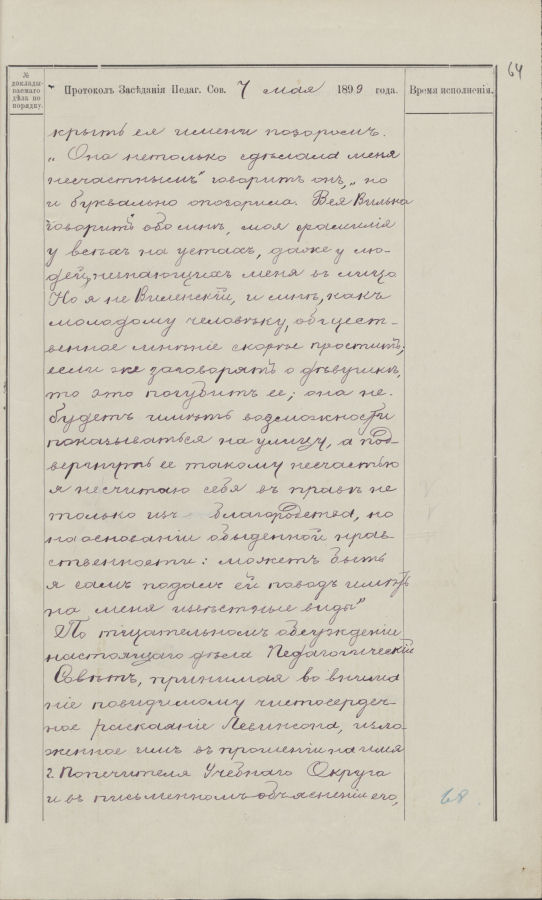 64
№ докладываемаго дѣла по порядку.
Протоколъ Засѣданія Педаг. Сов. 7 мая 1899 года.
Время исполненія.
крыть ея имени позоромъ.
„Она нетолько сдѣлала меня
несчастнымъ“ говоритъ онъ, „но
и буквально опозорила. Вся Вильна
говоритъ обо мнѣ, моя фамилія
у всѣхъ на устахъ, даже у лю-
дей, незнающихъ меня въ лицо
Но я не Виленскій, и мнѣ, какъ
молодому человѣку, общест-
венное мнѣніе скорѣе проститъ;
если же заговорятъ о дѣвушкѣ,
то это погубитъ ее; она не
будетъ имѣть возможности
показываться на улицу, а под-
вергнуть ее такому несчастью
я несчитаю себя въ правѣ не
только изъ благородства, но
на основаніи обыденной нрав-
ственности: можетъ быть
я самъ подалъ ей поводъ имѣть
на меня извѣстные виды“
По тщательномъ обсужденіи
настоящаго дѣла Педагогическій
Совѣтъ, принимая во внима
ніе повидимому чистосердеч-
ное раскаяніе Левинсона, изло-
женное имъ въ прошеніи на имя
г. Попечителя Учебнаго Округа
и въ письменномъ объясненіи его,
68